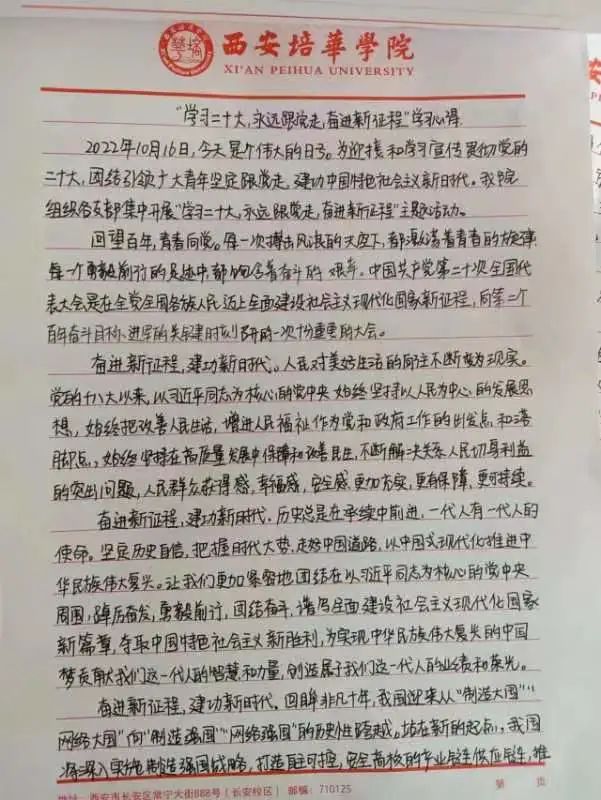 西安培華学院
XI'AN PEIHUA UNIVERSITY
"学习二十大,永远跟党走,奋进新征程"学习心得
2022年10月16日,今天是个伟大的日子。为迎接和学习宣传贯彻党的
二十大,团结引领广大青年坚定跟党走,建功中国特色社会主义新时代。我院
组织各支部集中开展"学习二十大,永远跟党走,奋进新征程"主题活动。
回望百年,青春向党。每一次搏击风浪的天空下,都激荡着青春的旋律,
每一个勇毅前行的足迹中,都饱含着奋斗的艰辛。中国共产党第二十次全国代
表大会是在全党全国各族人民迈上全面建设社会主义现代化国家新征程,向第二个
百年奋斗目标进军的关键时刻召开的一次十分重要的大会。
奋进新征程,建功新时代。人民对美好生活的向往不断变为现实。
党的十八大以来,以习近平同志为核心的党中央始终坚持以人民为中心的发展思
想,始终把改善人民生活,增进人民福祉作为党和政府工作的出发点和落
脚点,始终坚持在高质量发展中保障和改善民生,不断解决关系人民切身利益
的突出问题,人民群众获得感,幸福感,安全感更加充实,更有保障,更可持续。
奋进新征程,建功新时代。历史总是在承续中前进,一代人有一代人的
使命。坚定历史自信,把握时代大势,走好中国道路,以中国式现代化推进中
华民族伟大复兴。让我们更加紧密地团结在以习近平同志为核心的党中央
周围,踔厉奋发,勇毅前行,团结奋斗,谱写全面建设社会主义现代化国家
新篇章,夺取中国特色社会主义新胜利,为实现中华民族伟大复兴的中国
梦贡献我们这一代人的智慧和力量,创造属于我们这一代人的业绩和荣光。
奋进新征程,建功新时代。回眸非凡十年,我国迎来从"制造大国"
"网络大国"向"制造强国""网络强国"的历史性跨越。站在新的起点,我国
将深入实施制造强国战略,打造自主可控,安全高效的产业链供应链,推
地址:西安市长安区常宁大街888号(长安校区) 邮编:710125
第 页